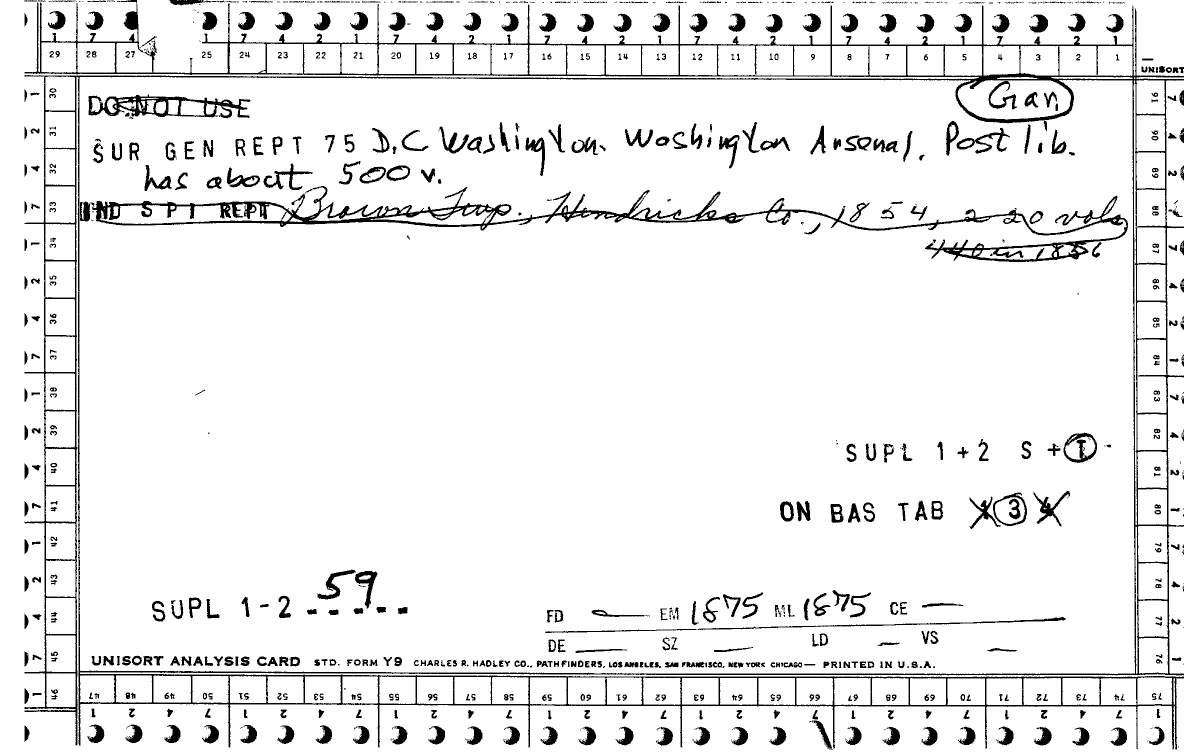 1 7 4 1 7 4 2 1 7 4 2 1 7 4 2 1 7 4 2 1 7 4 2 1 7 4 2 1
29 28 27 25 24 23 22 21 20 19 18 17 16 15 14 13 12 11 10 9 8 7 6 5 4 3 2 1
UNISORT
DO NOT USE
Gar.
SUR GEN REPT 75 D.C Washington. Washington Arsenal. Post lib.
has about 500 v.
IND SPI REPT Brown Twp. Hendricks Co., 1854, 220 vols
440 in 1856
SUPL 1+2 S + T
ON BAS TAB 1 3 4
SUPL 1-2 59
FD — EM 1875 ML 1875 CE —
DE — SZ — LD — VS —
UNISORT ANALYSIS CARD STD. FORM Y9 CHARLES R. HADLEY CO., PATHFINDERS, LOS ANGELES, SAN FRANCISCO, NEW YORK CHICAGO — PRINTED IN U.S.A.
30 31 32 33 34 35 36 37 38 39 40 41 42 43 44 45 46
91 90 89 88 87 86 85 84 83 82 81 80 79 78 77 76 75
47 48 49 50 51 52 53 54 55 56 57 58 59 60 61 62 63 64 65 66 67 68 69 70 71 72 73 74
1 2 4 7 1 2 4 7 1 2 4 7 1 2 4 7 1 2 4 7 1 2 4 7 1 2 4 7